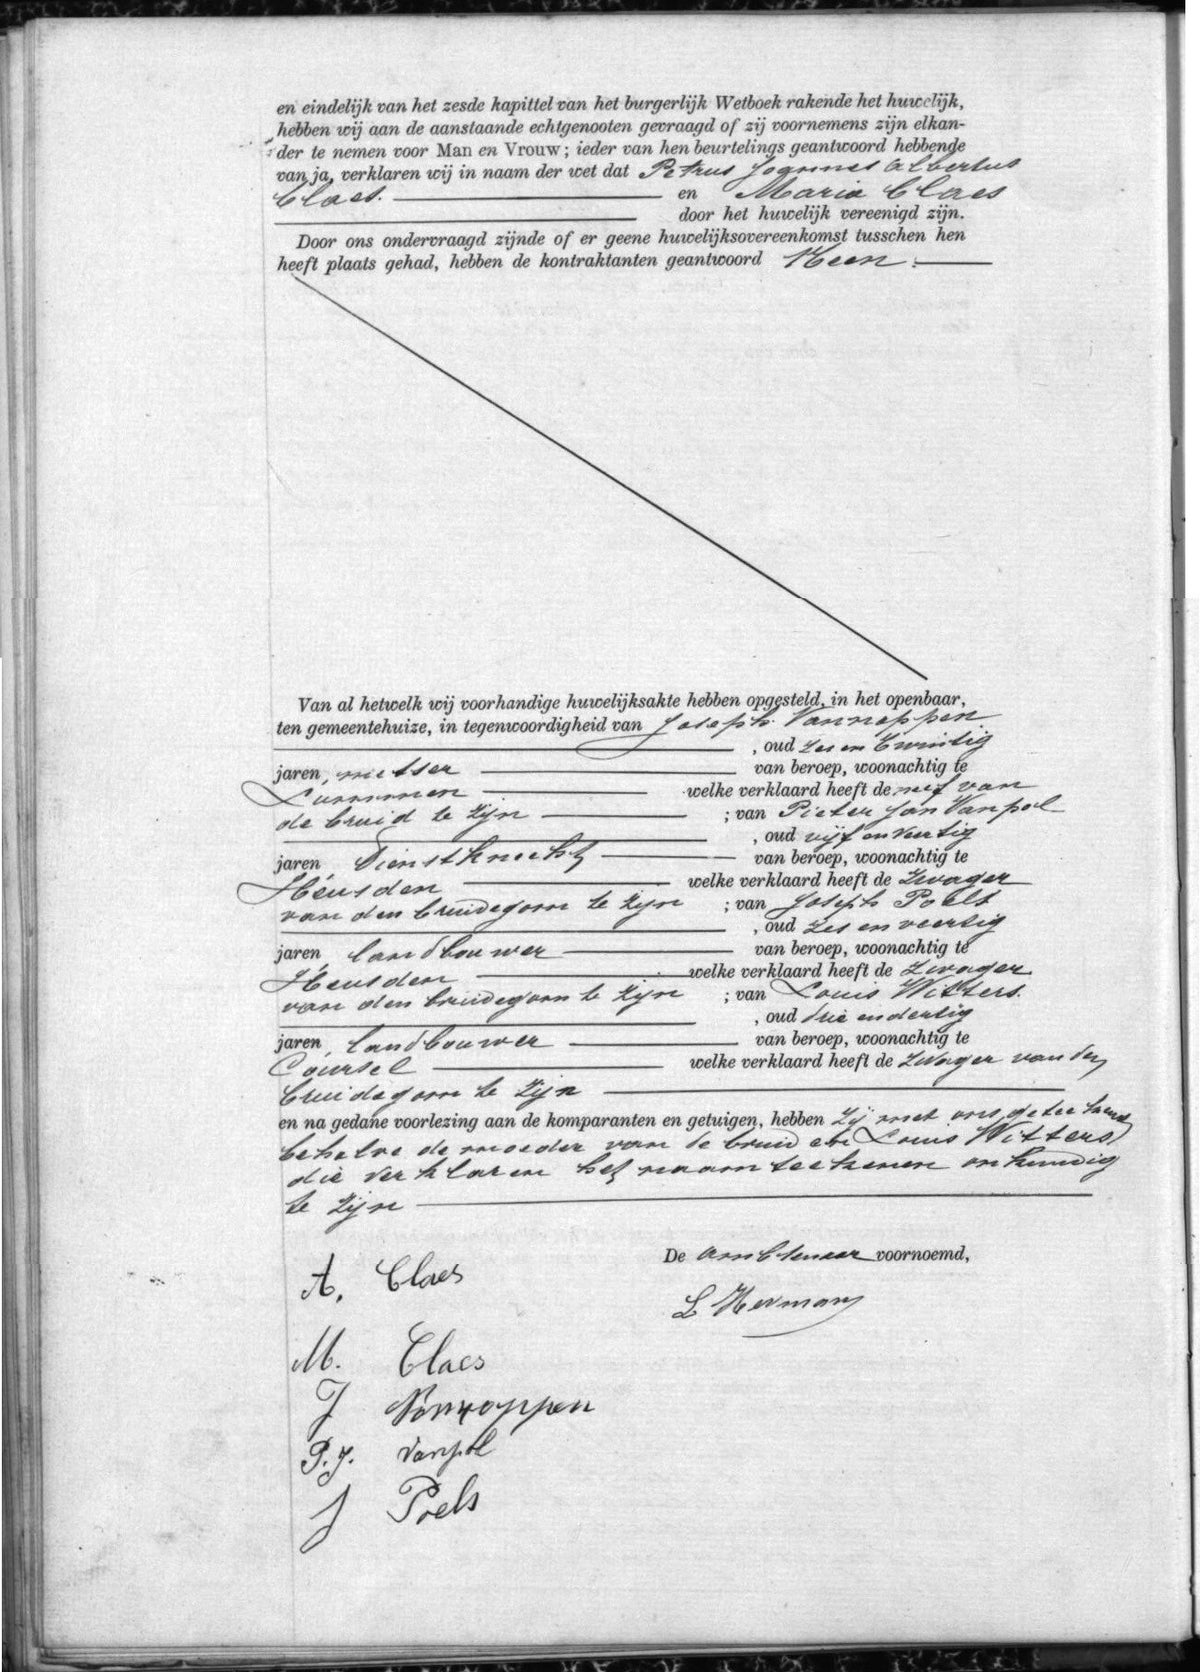 en eindelijk van het zesde kapittel van het burgerlijk Wetboek rakende het huwelijk,
hebben wij aan de aanstaande echtgenooten gevraagd of zij voornemens zijn elkan-
der te nemen voor Man en Vrouw; ieder van hen beurtelings geantwoord hebbende
van ja, verklaren wij in naam der wet dat Petrus Joannes Albertus
Claes. en Maria Claes
door het huwelijk vereenigd zijn.
Door ons ondervraagd zijnde of er geene huwelijksovereenkomst tusschen hen
heeft plaats gehad, hebben de kontraktanten geantwoord Neen.
Van al hetwelk wij voorhandige huwelijksakte hebben opgesteld, in het openbaar,
ten gemeentehuize, in tegenwoordigheid van Joseph Vannoppen
, oud zes en twintig
jaren, metser van beroep, woonachtig te
Lummen welke verklaard heeft de nef van
de bruid te zijn ; van Pieter Jan Vanpol
, oud vijf en veertig
jaren Dienstknecht van beroep, woonachtig te
Heusden welke verklaard heeft de zwager
van den bruidegom te zijn ; van Joseph Poels
, oud zes en veertig
jaren, landbouwer van beroep, woonachtig te
Heusden welke verklaard heeft de zwager
van den bruidegom te zijn ; van Louis Witters.
, oud drie en dertig
jaren, landbouwer van beroep, woonachtig te
Coursel welke verklaard heeft de zwager van den
bruidegom te zijn
en na gedane voorlezing aan de komparanten en getuigen, hebben zij met ons geteekend
behalve de moeder van de bruid en Louis Witters
die verklaren het naamteekenen onkundig
te zijn
De ambtenaar voornoemd,
A. Claes
L Hermans
M. Claes
J Vannoppen
P. J. Vanpol
J Poels